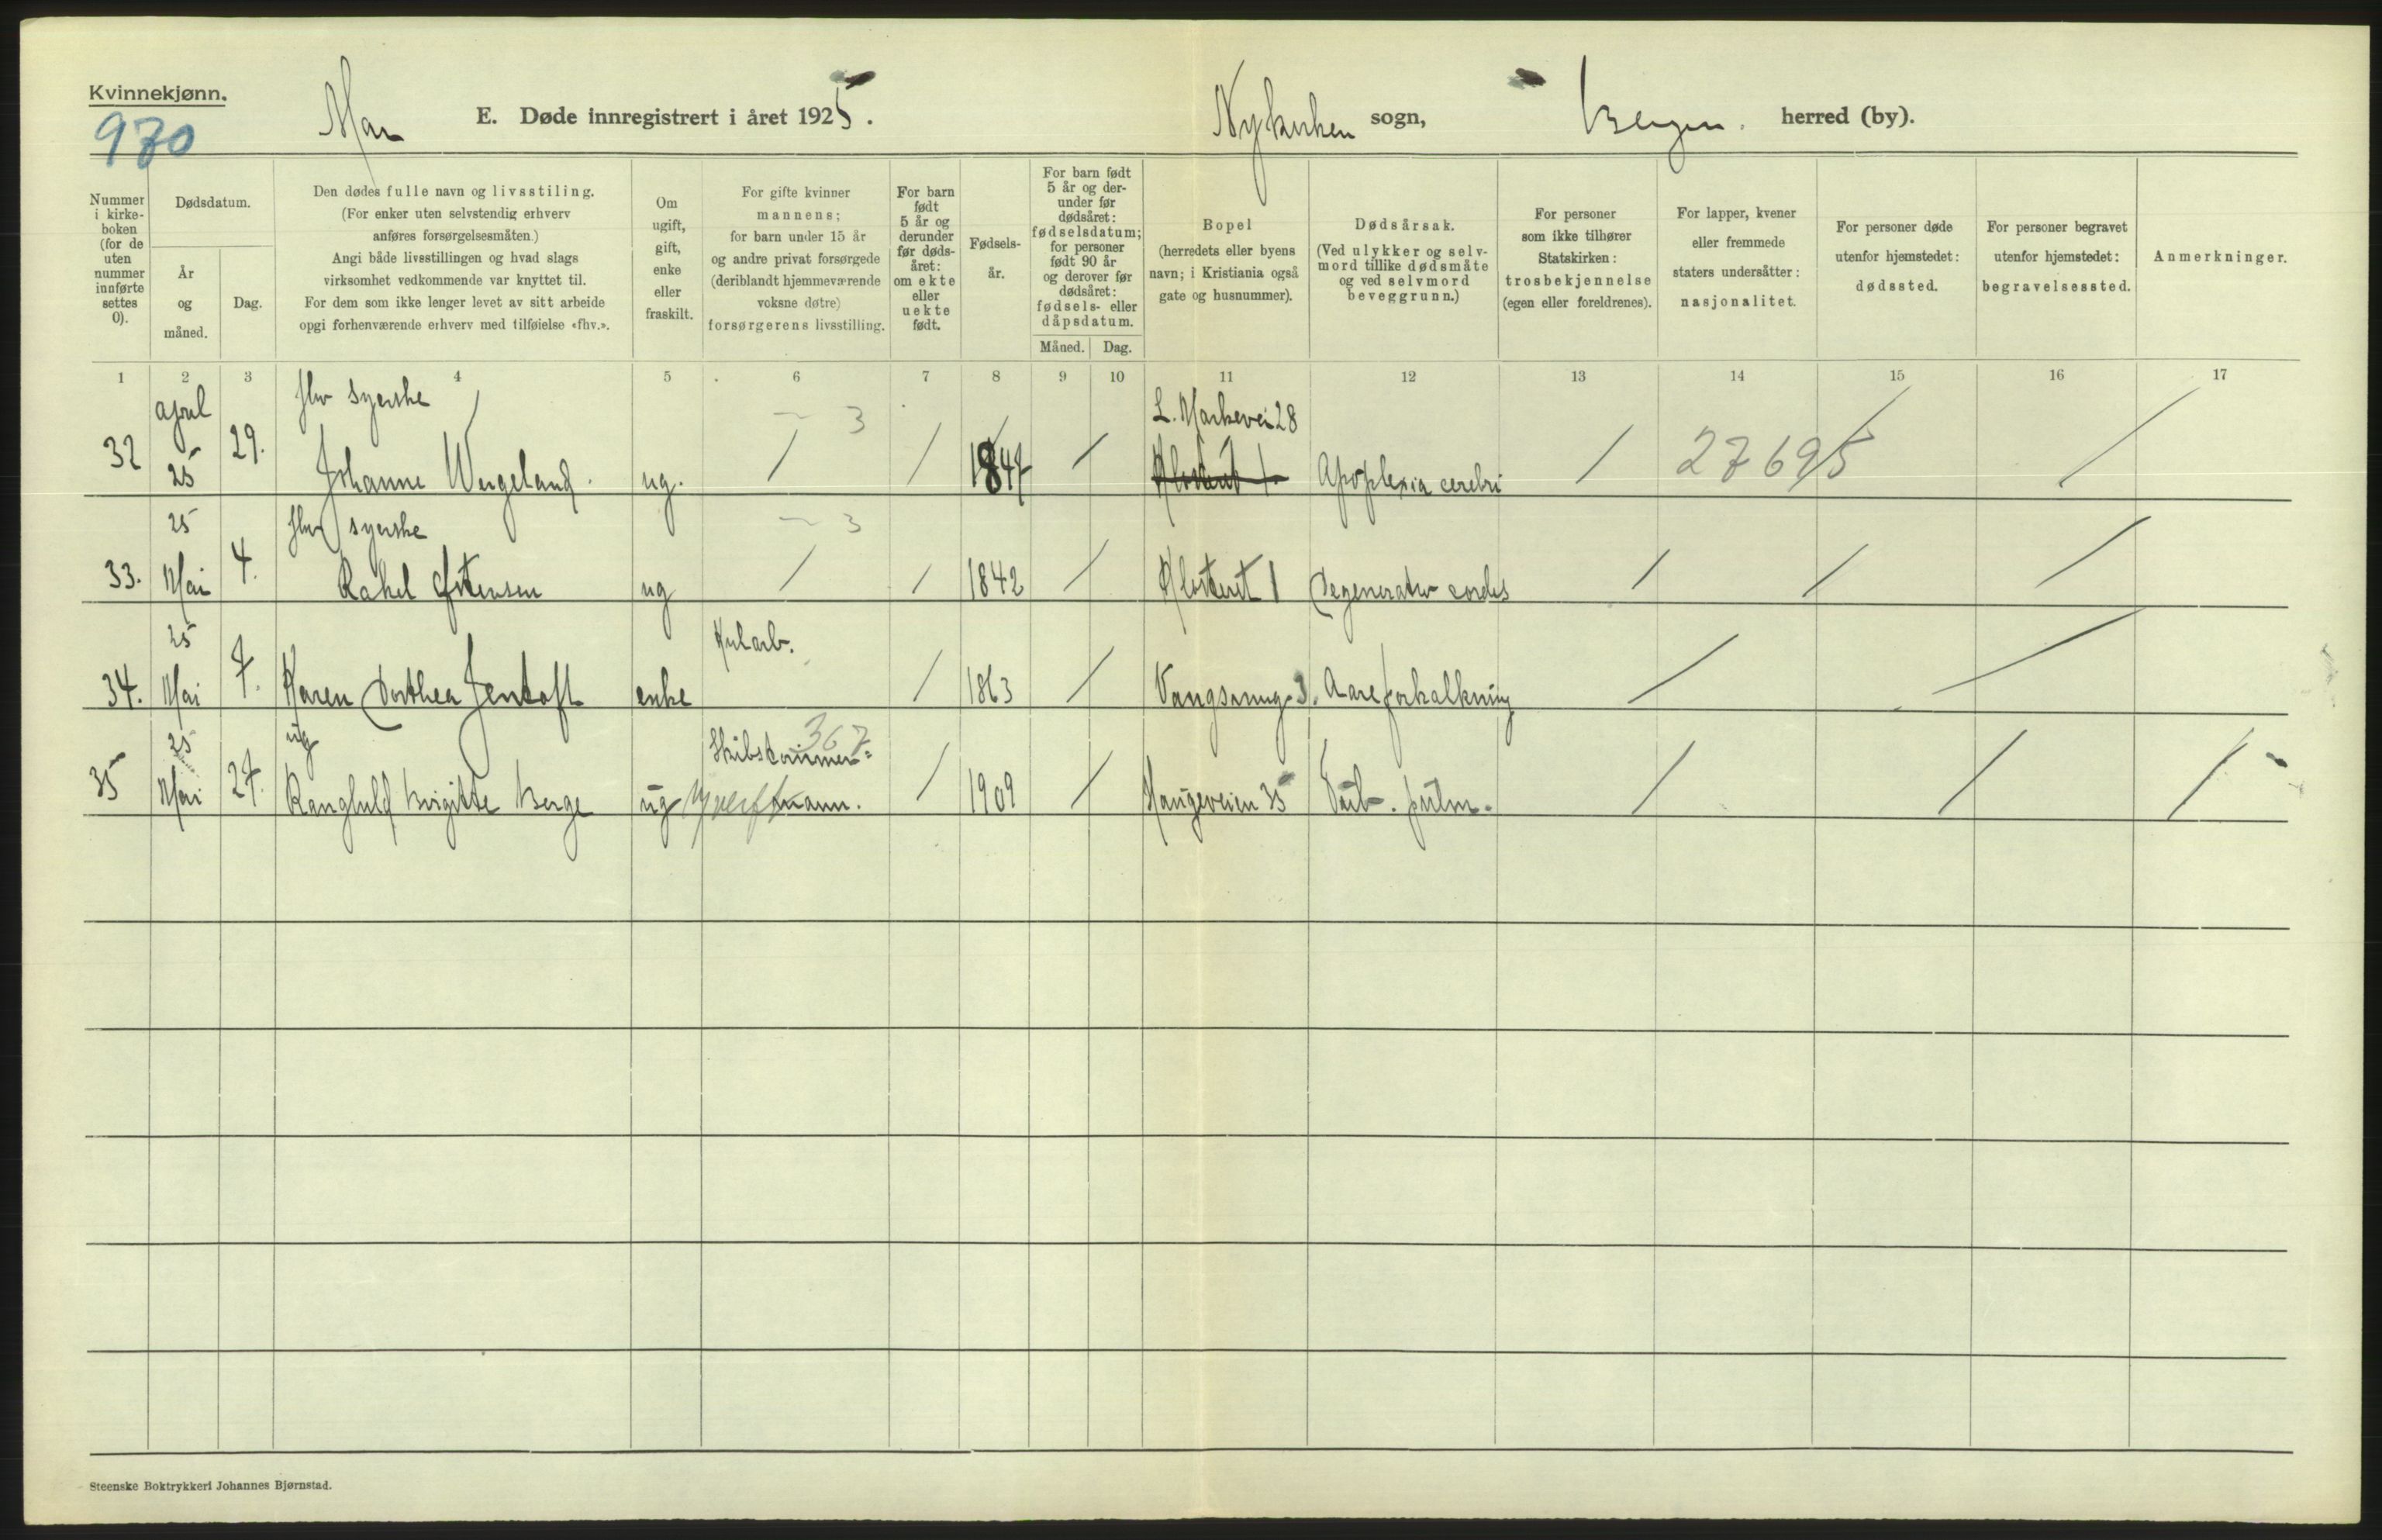 Kvinnekjønn.
970
Mai
E. Døde innregistrert i året 1925.
Nykirken sogn,
Bergen. herred (by).
Nummer i kirke-boken (for de uten nummer innførte settes 0).
Dødsdatum.
År og måned.
Dag.
Den dødes fulle navn og livsstiling.
(For enker uten selvstendig erhverv
anføres forsørgelsesmåten.)
Angi både livsstillingen og hvad slags
virksomhet vedkommende var knyttet til.
For dem som ikke lenger levet av sitt arbeide
opgi forhenværende erhverv med tilføielse «fhv.».
Om ugift, gift, enke eller fraskilt.
For gifte kvinner
mannens;
for barn under 15 år
og andre privat forsørgede
(deriblandt hjemmeværende
voksne døtre)
forsørgerens livsstilling.
For barn født 5 år og derunder før døds-året: om ekte eller uekte født.
Fødsels-år.
For barn født 5 år og der-under før dødsåret: fødselsdatum; for personer født 90 år og derover før dødsåret: fødsels- eller dåpsdatum.
Måned. Dag.
Bopel
(herredets eller byens
navn; i Kristiania også
gate og husnummer).
Dødsårsak.
(Ved ulykker og selv-
mord tillike dødsmåte
og ved selvmord
beveggrunn.)
For personer
som ikke tilhører
Statskirken:
trosbekjennelse
(egen eller foreldrenes).
For lapper, kvener
eller fremmede
staters undersåtter:
nasjonalitet.
For personer døde
utenfor hjemstedet:
dødssted.
For personer begravet
utenfor hjemstedet:
begravelsessted.
Anmerkninger.
1 2 3 4 5 6 7 8 9 10 11 12 13 14 15 16 17
april fhv syerske ~ 3 L. Markevei 28
32 25 29. Johanne Wergeland. ug. / / 1847 / Klosteret 1 Apoplexia cerebri / 27695 /
25 fhv syerske ~ 3
33. Mai 4. Rakel Østensen ug / / 1842 / Klosteret 1 Degeneratio cordis / / /
25 Kularb.
34. Mai 7. Karen Dorthea Jentoft enke / 1863 / 3. Aareforkalkning / /
25 ug Skibstømmer= 367
35 Mai 27. Birgitte Berge ug mann. / 1909 / Haugeveien 35 Tub. pulm. / / /
Steenske Boktrykkeri Johannes Bjørnstad.